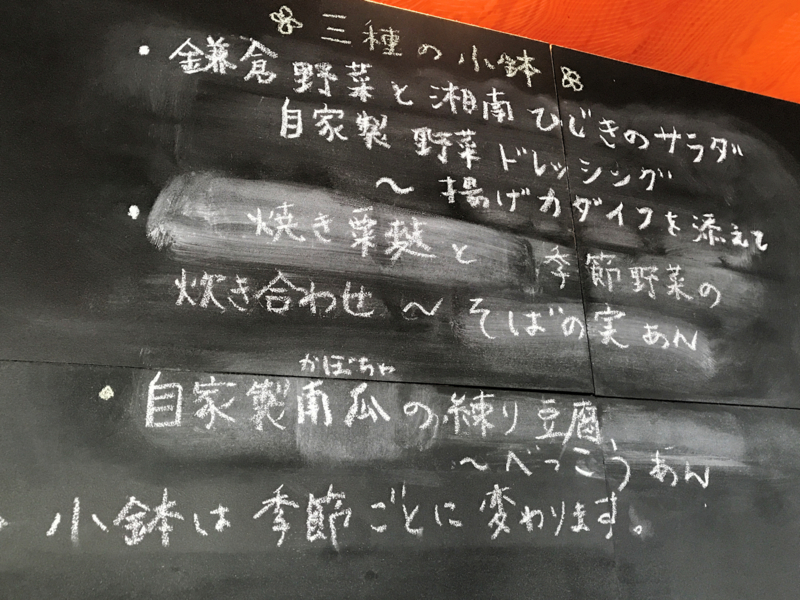 三種の小鉢
・鎌倉野菜と湘南ひじきのサラダ
自家製 野菜ドレッシング
〜揚げカダイフを添えて
・焼き粟麩と 季節野菜の
炊き合わせ〜そばの実あん
かぼちゃ
・自家製南瓜の練り豆腐、
〜べっこうあん
小鉢は季節ごとに変わります。